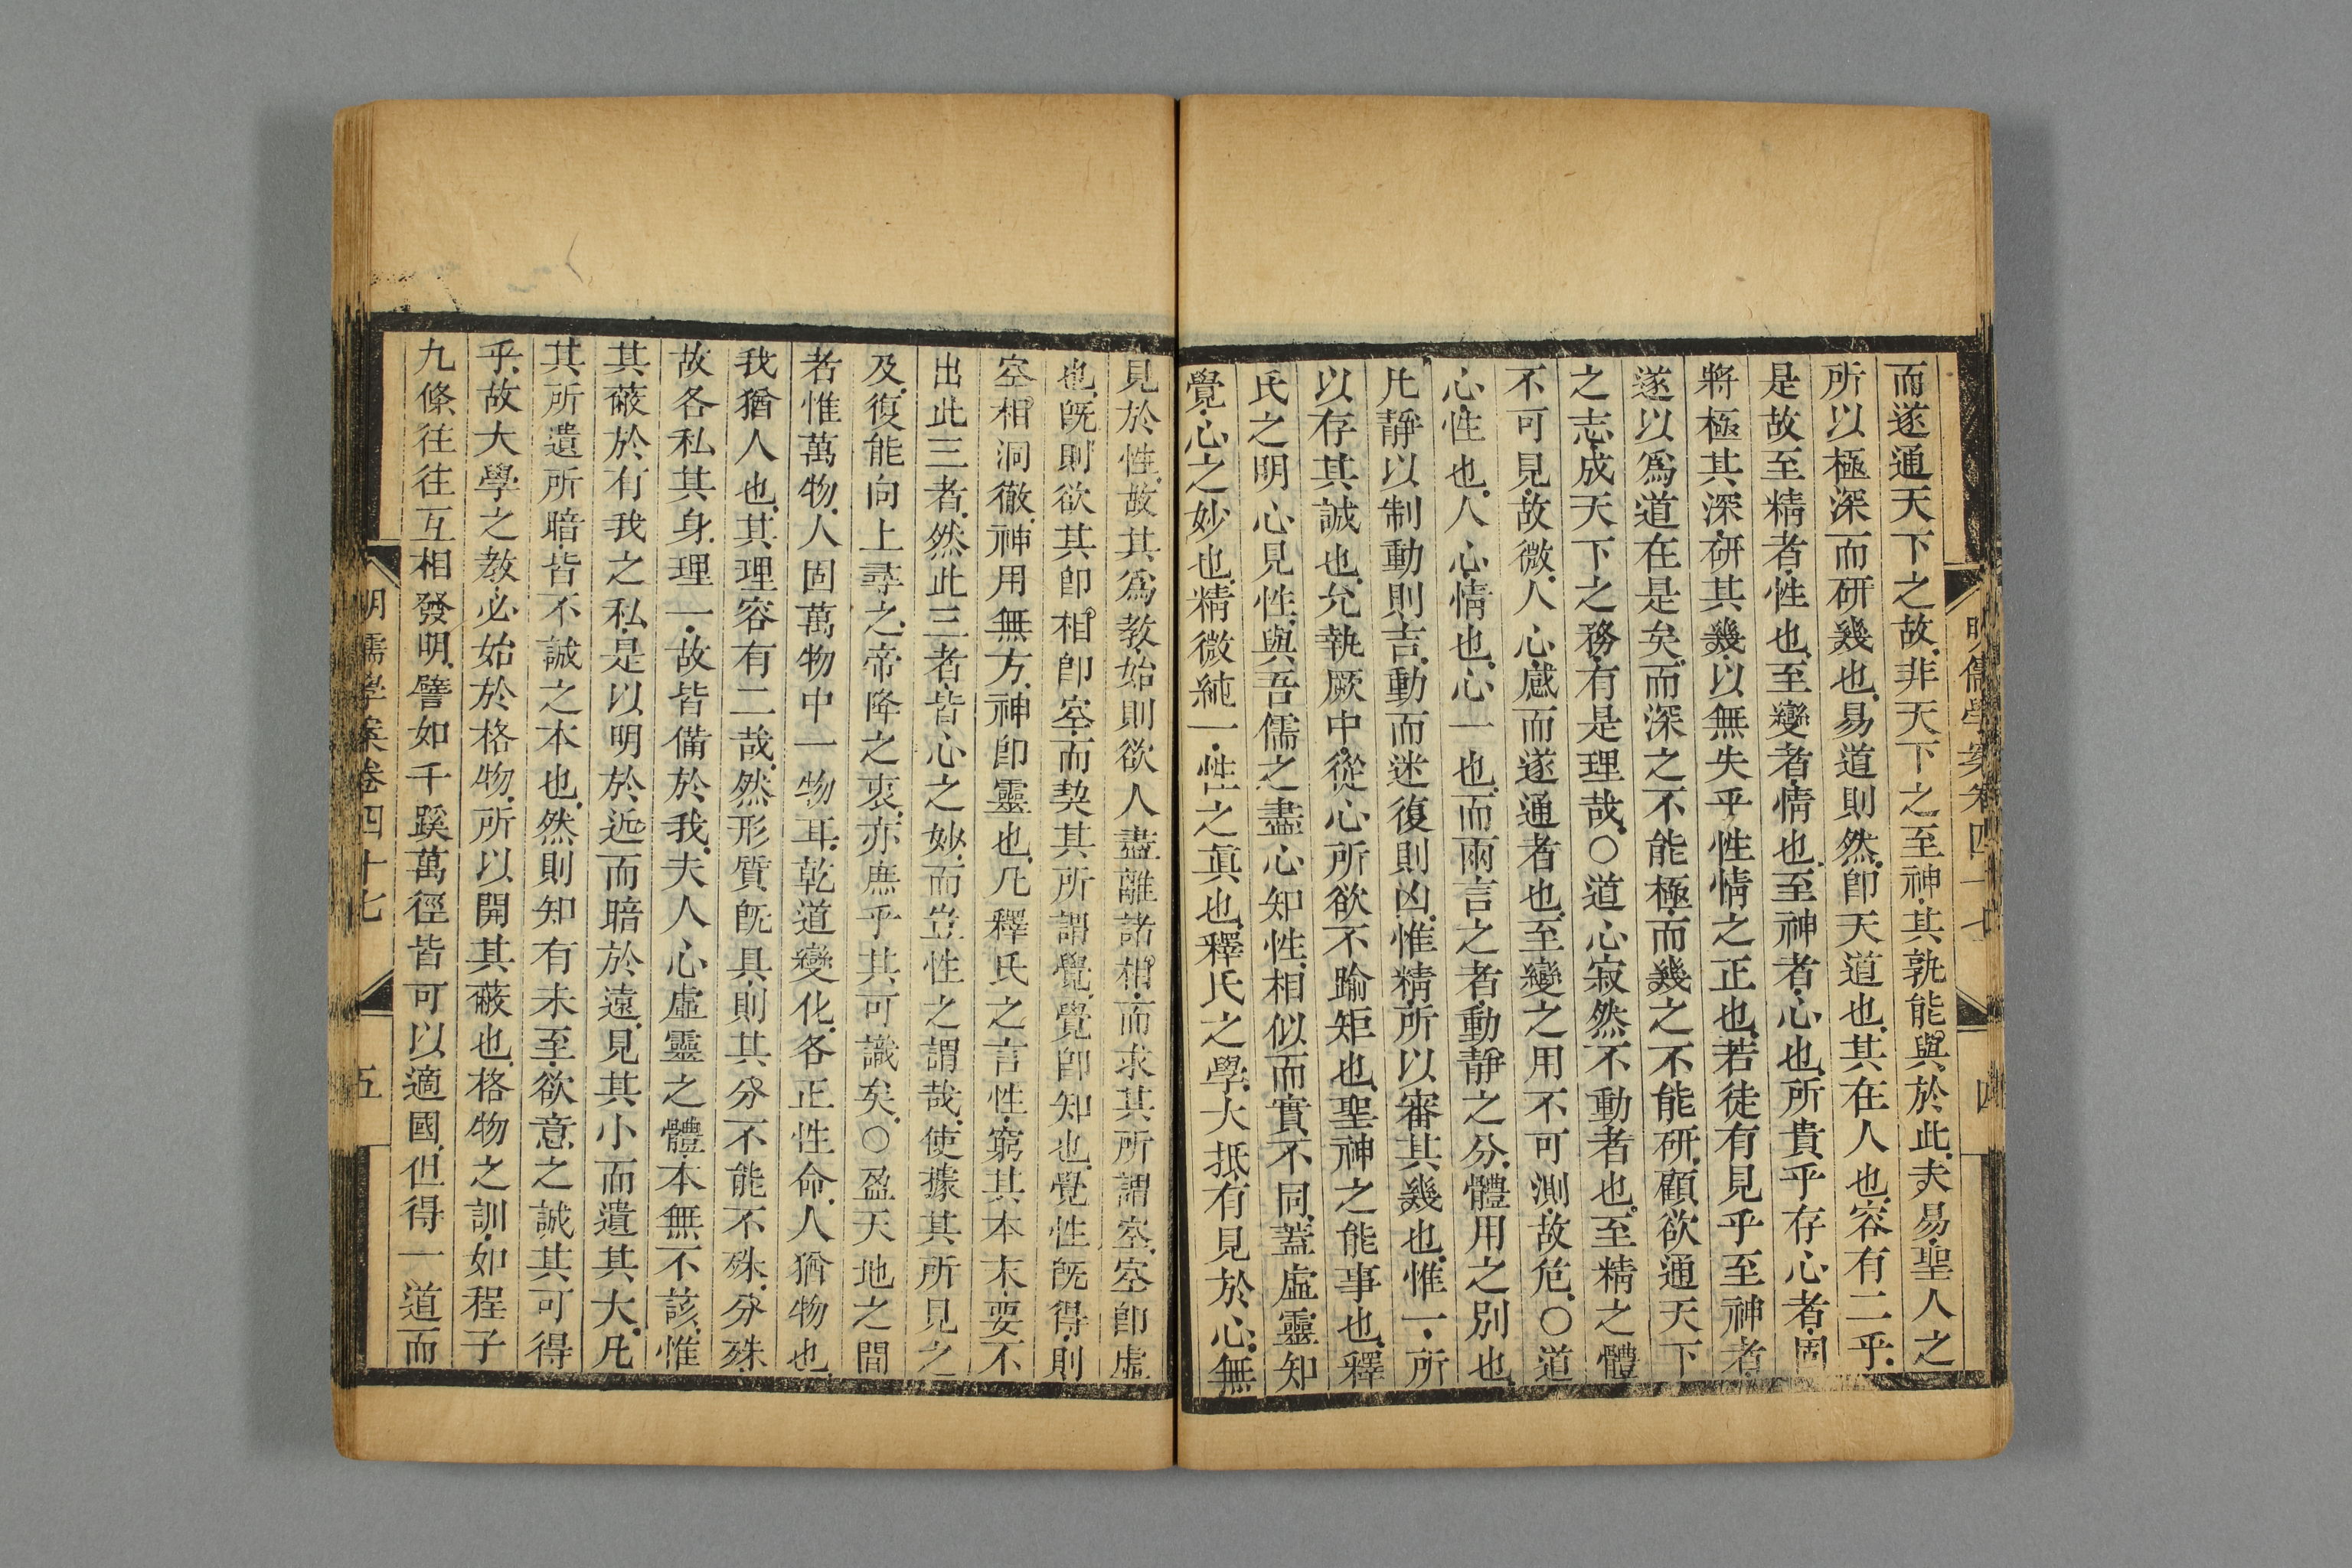 明儒學案卷四十七
四
而遂通天下之故.非天下之至神.其孰能與於此.夫易.聖人之
所以極深而研幾也.易道則然.卽天道也.其在人也.容有二乎.
是故至精者.性也.至變者.情也.至神者.心也.所貴乎存心者.固
將極其深.研其幾.以無失乎性情之正也.若徒有見乎至神者.
遂以爲道在是矣.而深之不能極.而幾之不能研.顧欲通天下
之志.成天下之務.有是理哉.○道心寂然不動者也.至精之體
不可見.故微.人心.感而遂通者也.至變之用不可測.故危.○道
心.性也.人心.情也.心一也.而兩言之者.動靜之分.體用之別也.
凡靜以制動則吉.動而迷復則凶.惟精.所以審其幾也.惟一.所
以存其誠也.允執厥中.從心所欲不踰矩也.聖神之能事也.釋
氏之明心見性.與吾儒之盡心知性.相似而實不同.蓋虛靈知
覺.心之妙也.精微純一.性之眞也.釋氏之學.大抵有見於心.無
見於性.故其爲教.始則欲人盡離諸相.而求其所謂空.空卽虛
也.旣則欲其卽相卽空.而契其所謂覺.覺卽知也.覺性旣得.則
空相洞徹.神用無方.神卽靈也.凡釋氏之言性.窮其本末.要不
出此三者.然此三者.皆心之妙.而豈性之謂哉.使據其所見之
及.復能向上尋之.帝降之衷.亦庶乎其可識矣.○盈天地之間
者惟萬物.人固萬物中一物耳.乾道變化.各正性命.人猶物也.
我猶人也.其理容有二哉.然形質旣具.則其分不能不殊.分殊.
故各私其身.理一.故皆備於我.夫人心虛靈之體.本無不該.惟
其蔽於有我之私.是以明於近而暗於遠.見其小而遺其大.凡
其所遺所暗.皆不誠之本也.然則知有未至.欲意之誠.其可得
乎.故大學之教.必始於格物.所以開其蔽也.格物之訓.如程子
九條.往往互相發明.譬如千蹊萬徑.皆可以適國.但得一道而
明儒學案卷四十七
五